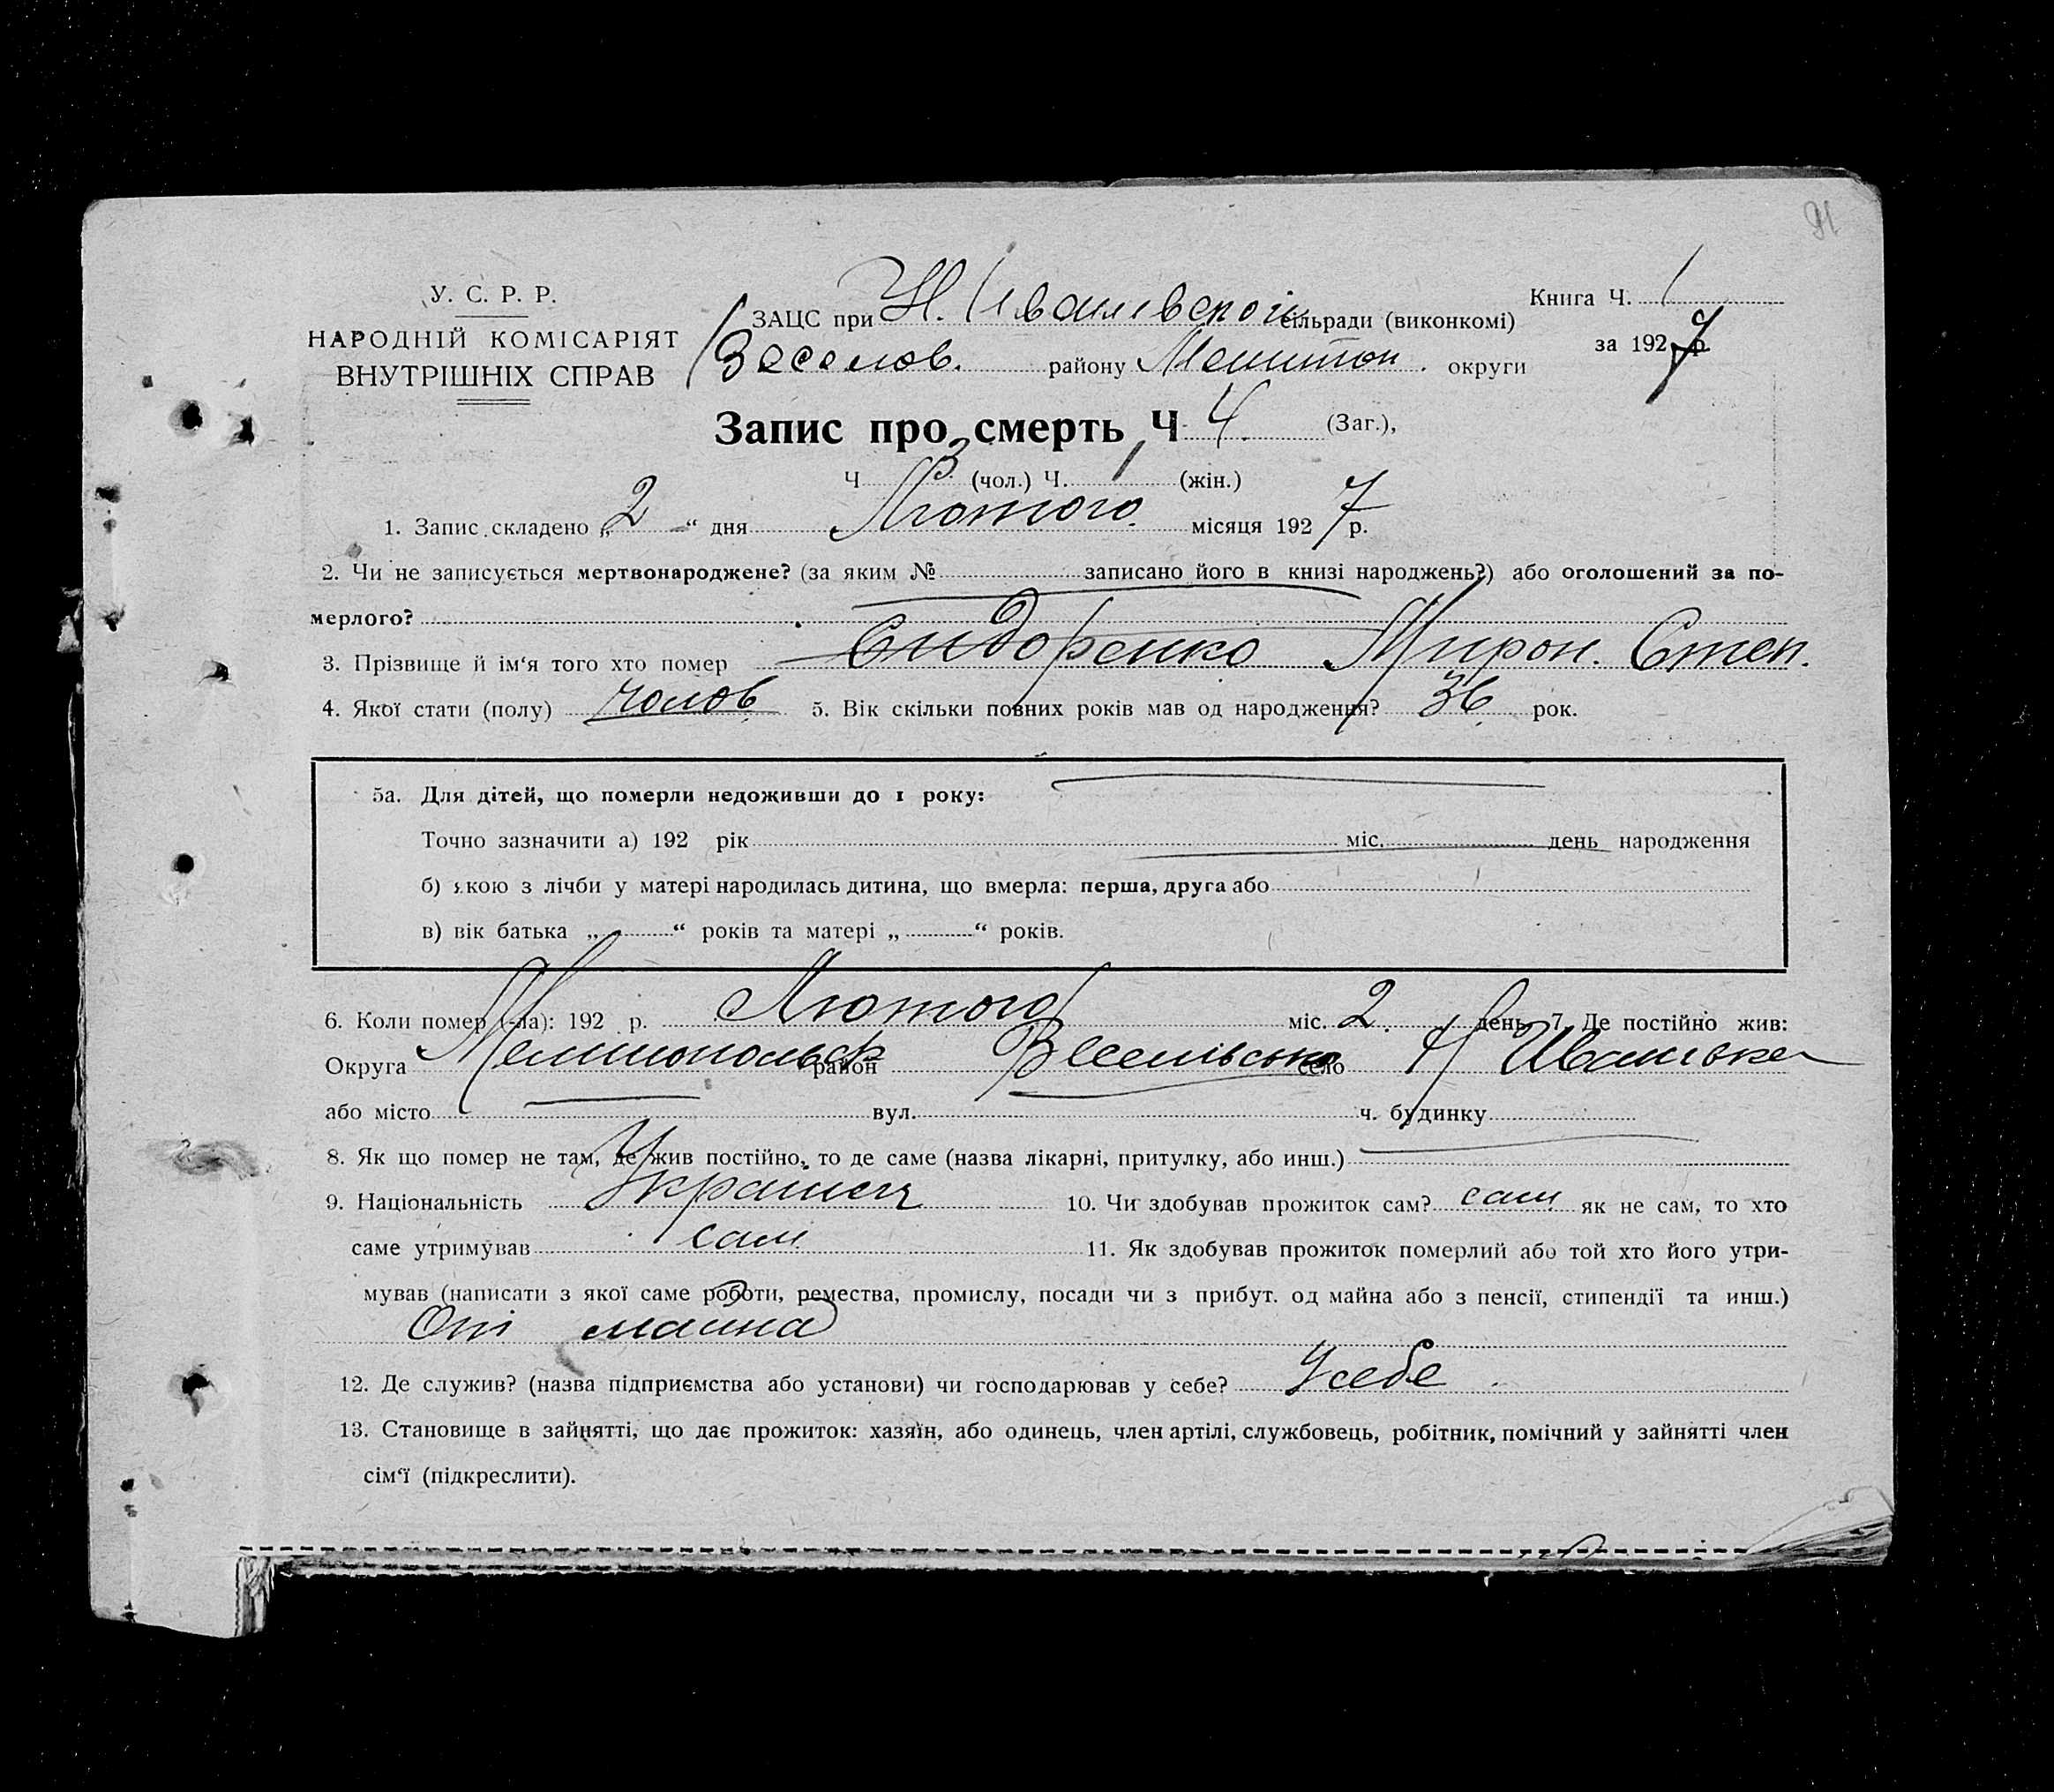 91
У. С. Р. Р.
НАРОДНІЙ КОМІСАРІЯТ
ВНУТРІШНІХ СПРАВ
ЗАЦС при Н. Іванівской сільради (виконкомі)
Веселов. району Мелитоп. округи
Книга Ч. 1
за 1927 р.
Запис про смерть Ч 4. (Заг.),
Ч 3. (чол.) Ч. 1 (жін.)
1. Запис складено „2“ дня Лютого. місяця 1927 р.
2. Чи не записується мертвонароджене? (за яким № записано його в книзі народжень?) або оголошений за по-
мерлого?
3. Прізвище й ім‘я того хто помер Сидоренко Мирон. Степ.
4. Якої стати (полу) чолов. 5. Вік скільки повних років мав од народження? 36 рок.
5а. Для дітей, що померли недоживши до 1 року:
Точно зазначити а) 192 рік міс. день народження
б) якою з лічби у матері народилась дитина, що вмерла: перша, друга або
в) вік батька „ “ років та матері „ “ років.
6. Коли помер (-ла): 192 р. Лютого міс. 2. день 7. Де постійно жив:
Округа район село Н
або місто вул. ч. будинку
8. Як що помер не там, де жив постійно, то де саме (назва лікарні, притулку, або инш.)
9. Національність Украинец 10. Чи здобував прожиток сам? сам як не сам, то хто
саме утримував сам 11. Як здобував прожиток померлий або той хто його утри-
мував (написати з якої саме роботи, ремества, промислу, посади чи з прибут. од майна або з пенсії, стипендії та инш.)
От майна
12. Де служив? (назва підприємства або установи) чи господарював у себе? У себе
13. Становище в зайнятті, що дає прожиток: хазяїн, або одинець, член артілі, службовець, робітник, помічний у зайнятті член
сім‘ї (підкреслити).